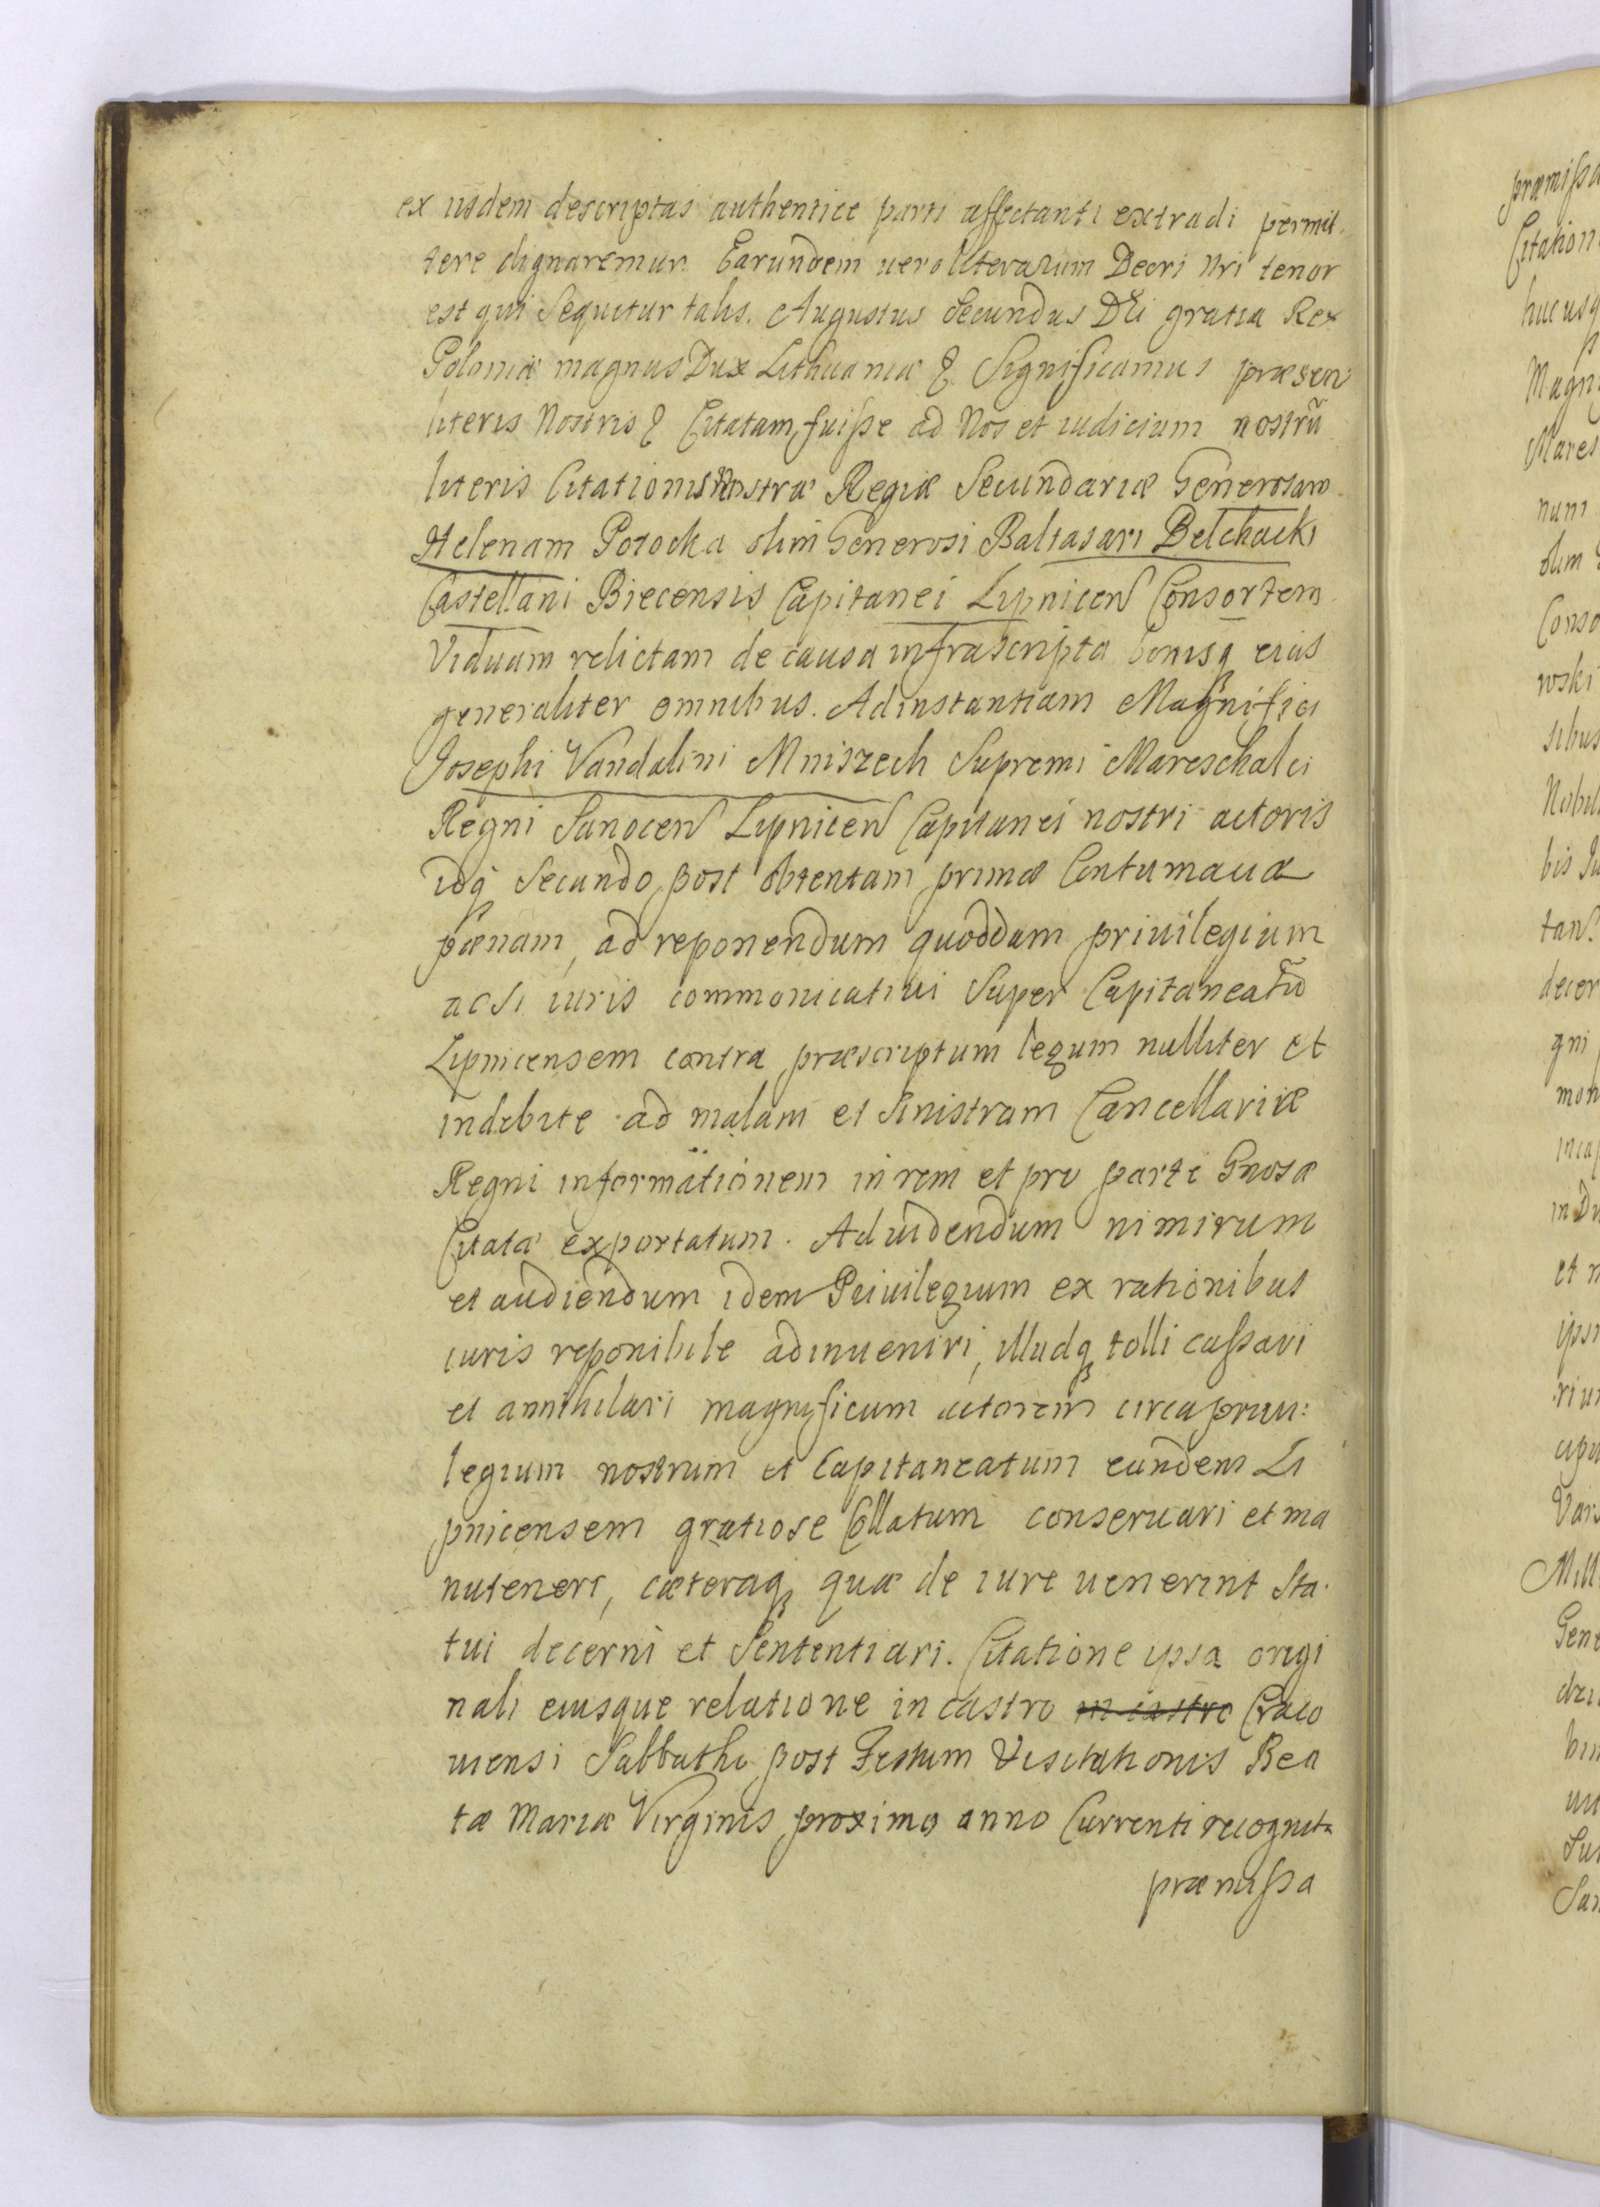 ex iisdem descriptas authentice parti affectanti extradi permit
tere dignaremur. Earundem uero literarum Decri Nri tenor
est qui Sequitur talis. Augustus Secundus Dei gratia Rex
Poloniæ magnus Dux Lithuaniæ & Significamus præsen
literis Nostris & Citatam fuiſse ad Nos et iudicium nostrũ
literis Citationis Nostræ Regiæ Secundariæ Generosam
Helenam Potocka olim Generosi Baltasari Belchacki
Castellani Biecensis Capitanei Lipnicen Consortem
Viduam relictam de causa infrascripta bonisq eius
generaliter omnibus. Ad instantiam Magnifici
Josephi Vandalini Mniszech Supremi Mareschalci
Regni Sanocen Lipnicen Capitanei nostri actoris
idq Secundo post obtentam primæ Contumaciæ
pænam, ad reponendum quoddam priuilegium
ac Si iuris commonicatiui Super Capitaneatũ
Lipnicensem contra præscriptum legum nulliter et
indebite ad malam et Sinistram Cancellariæ
Regni informationem in rem et pro parte Gnosæ
Citatæ exportatum. Ad uidendum nimirum
et audiendum idem Priuilegium ex rationibus
iuris reponibile adinueniri, illudq tolli caſsari
et annihilari magnificum actorem circa priui:
legium nostrum et Capitaneatum eundem Li
pnicensem gratiose Collatum conseruari et ma
nuteneri, cæteraq quæ de iure uenerint Sta
tui decerni et Sententiari. Citatione ipsa origi
nali eiusque relatione in castro in castro Craco
uiensi Sabbatho post Festum Visitationis Bea
tæ Mariæ Virginis proximo anno Currenti recognita
præmiſsa
præmiſsa
Citation
huc usq
Magni
Mares
nuni
olim
Conso
wski
sibus
Nobil
bis Ju
tan
decer
gni
mon
incap
in Du
et n
ipsi
rium
apu
Vars
Mill
Gene
dzi
bin
ui
Su
San